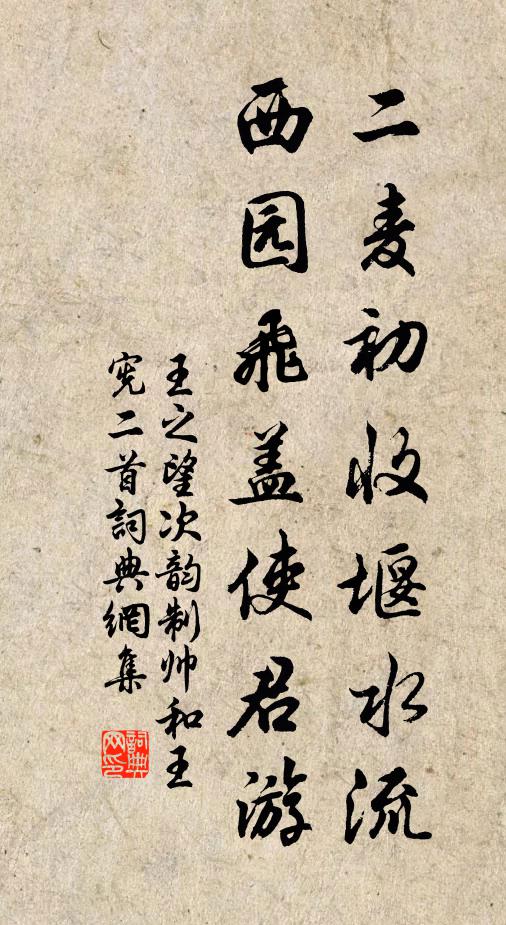 二麦初收堰水流
西园飛盖使君游
王之望次韵制帅和王
宪二首詞典網集
詞典
网印